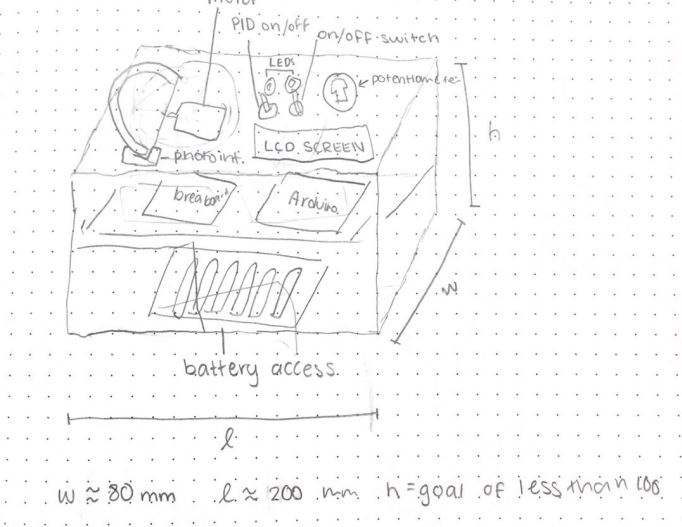 motor
PID on/off
on/off switch
LEDs
potentiometer
LCD SCREEN
photoint.
Arduino
battery access
h
w
l
w ≈ 80 mm l ≈ 200 mm h = goal of less than 100